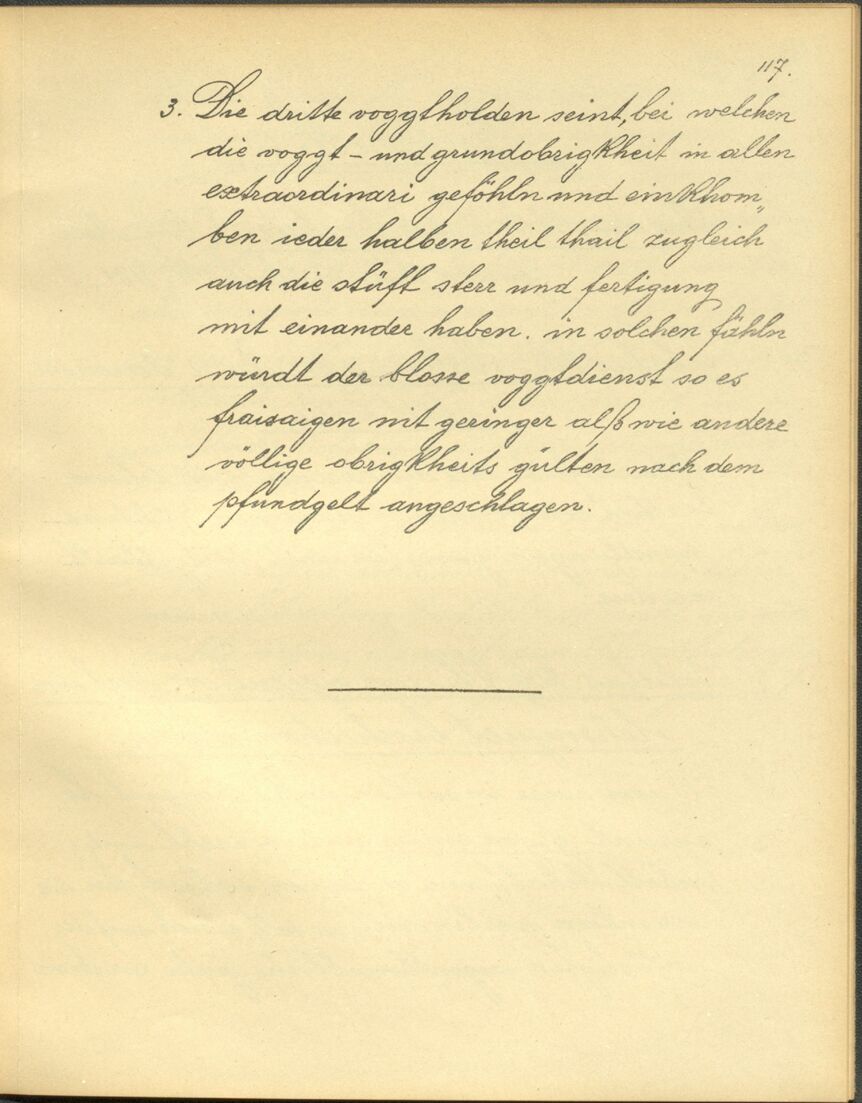 117.
3. Die dritte voggtholden seint, bei welchen
die voggt - und grundobrigkheit in allen
extraordinari geföhln und einkhom„
ben ieder halben theil thail zugleich
auch die stüft sterr und fertigung
mit einander haben. in solchen fähln
würdt der blosse voggtdienst so es
fraisaigen nit geringer alß wie andere
völlige obrigkheits gülten nach dem
pfundgelt angeschlagen.